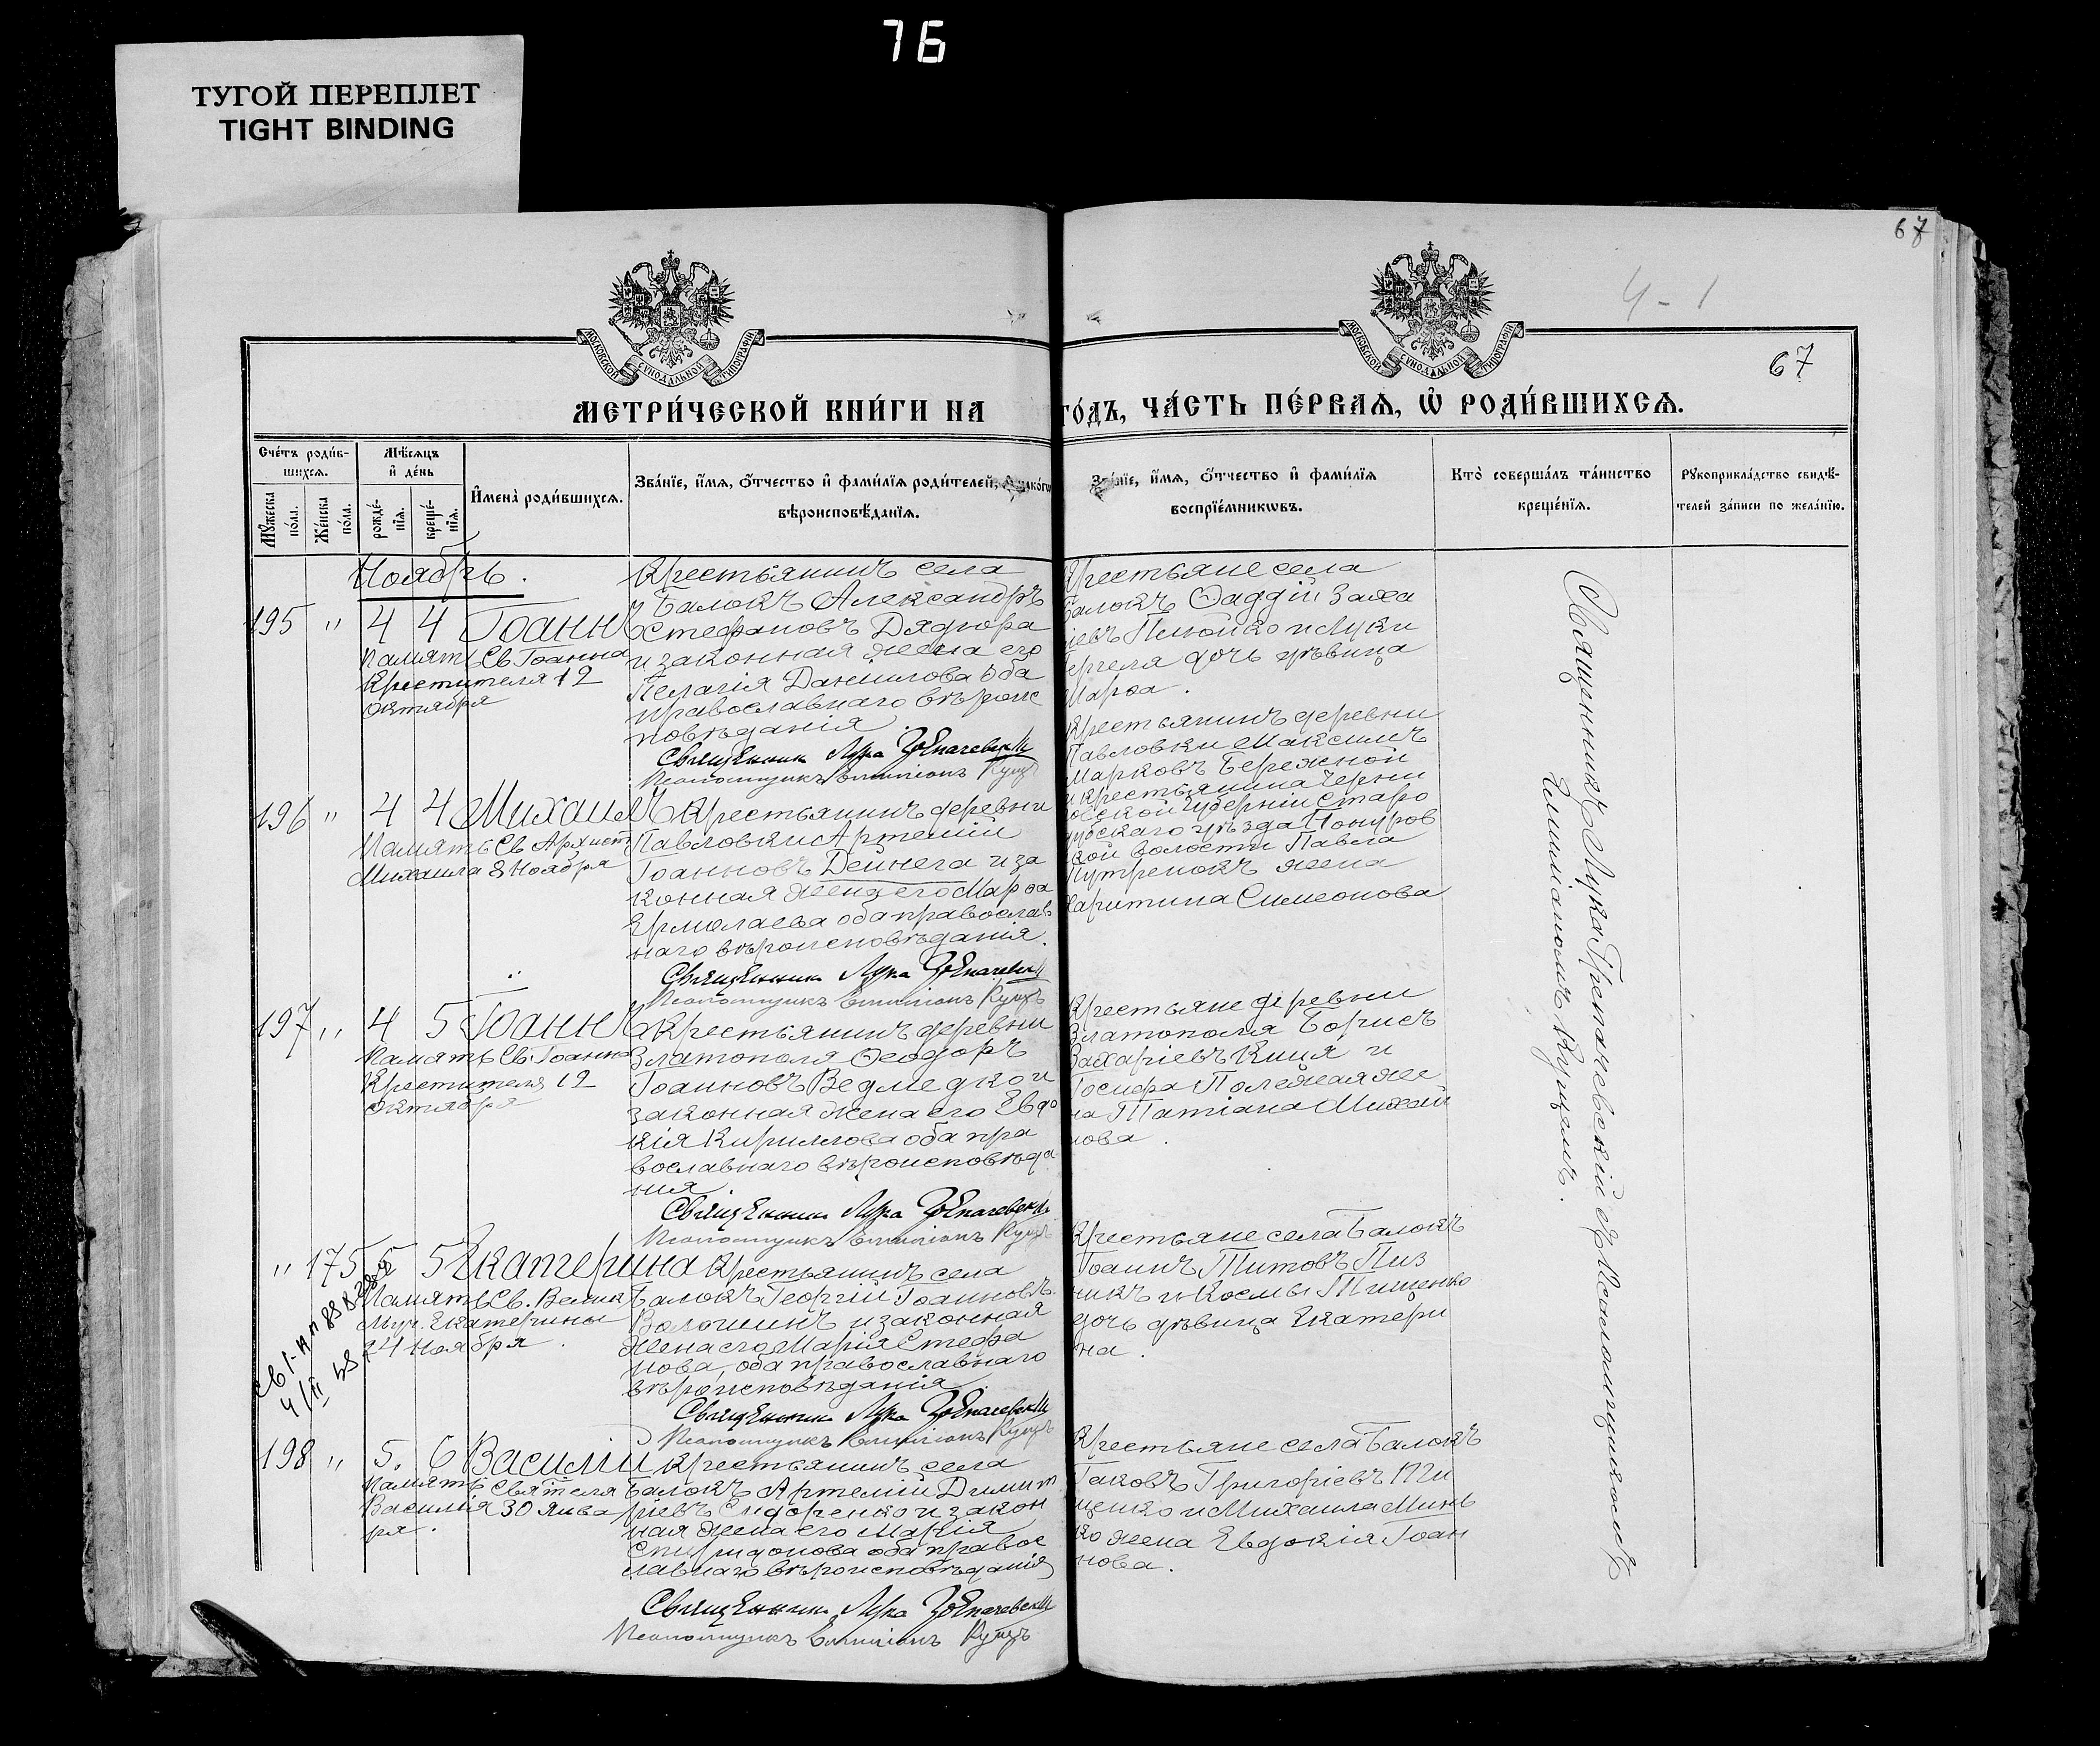 76
ТУГОЙ ПЕРЕПЛЕТ
TIGHT BINDING
67
4-1
67
МОСКОВСКОЙ СѴНОДАЛЬНОЙ ТИПОГРАФІИ
МОСКОВСКОЙ СѴНОДАЛЬНОЙ ТИПОГРАФІИ
МЕТРИ́ЧЕСКОЙ КНИ́ГИ НА
ГО́ДЪ, ЧА́СТЬ ПЕ́РВАѦ, Ѡ҆ РОДИ́ВШИХСѦ.
Сче́тъ роди́в-
шихся.
Мꙋ́жеска по́ла.
Же́нска по́ла.
Мѣ́сяцъ
и҆ де́нь
рожде́-
нїѧ.
креще́-
нїѧ.
И҆мена̀ роди́вшихсѧ.
Зва́нїе, и҆́мѧ, ѻ҆́тчество и҆ фами́лїѧ роди́телей, и҆ како́гѡ
вѣроисповѣ́данїѧ.
Зва́нїе, и҆́мѧ, ѻ҆́тчество и҆ фами́лїѧ
воспрїе́мникѡвъ.
Кто̀ соверша́лъ та́инство
креще́нїѧ.
Рꙋкоприкла́дство свидѣ́-
телей за́писи по жела́нїю.
Ноябрь.
195 " 4 4 Іоаннъ
Память Св Іоанна
Крестителя 12
Октября
Крестьянинъ села
Балокъ Александръ
Стефановъ Дядюра
и законная жена его
Пелагія Даниилова оба
православнаго вѣроис
повѣданія.
Священник Лука
Псаломщикъ Емиліанъ Куцъ
Крестьяне села
Балокъ Ѳаддій Заха
дочь дѣвица
Марѳа.
196 " 4 4 Михаилъ
Память Св Архист
Михаила 8 Ноября
Крестьянинъ деревни
Павловки Артемій
Іоанновъ Дейнега и за
конная жена его Марѳа
Ермолаева оба православ
наго вѣроисповѣданія.
Священник Лука
Псаломщикъ Емиліанъ Куцъ
Крестьянинъ деревни
Павловки Максимъ
Марковъ Бережной
и крестьянина Черни
говской Губерніи Старо
дубскаго уѣзда Понуров
кой волости Павла
жена
Харитина Симеонова
197 " 4 5 Іоаннъ
Память Св Іоанна
Крестителя 12
Октября
Крестьянинъ деревни
Златополя Ѳеодоръ
Іоанновъ Ведмедко и
законная жена его Евдо
кія Кириллова оба пра
вославнаго вѣроисповѣда
нія.
Священник Лука
Псаломщикъ Емиліанъ Куцъ
Крестьяне деревни
Златополя Борисъ
Захаріевъ Киця и
Іосифа Полежая же
на Татіана Михаи
лова.
" 175 5 5 Екатерина
Память Св. Велик
Муч. Екатерины
24 Ноября.
Крестьянинъ села
Балокъ Георгій Іоанновъ
Волошинъ и законная
жена его Марія Стефа
нова, оба православнаго
вѣроисповѣданія
Священник Лука
Псаломщикъ Емиліанъ Куцъ
Крестьяне села Балокъ
Іоаннъ Титовъ Пиз
никъ и Космы Тищенко
дочь дѣвица Екатери
на.
198 " 5. 6 Василій
Память Святителя
Василія 30 Янва
ря.
Крестьянинъ села
Балокъ Артемій Димит
ріевъ Сидоренко и закон
ная жена его Марія
Спиридонова оба правос
лавнаго вѣроисповѣданія
Священник Лука
Псаломщикъ Емиліанъ Куцъ
Крестьяне села Балокъ
Іаковъ Григоріевъ Ти
щенко и Михаила Минь
ко жена Евдокія Іоан
нова.
Священникъ Лука Грепачевскій съ Псаломщикомъ
Емиліаномъ Куцемъ.